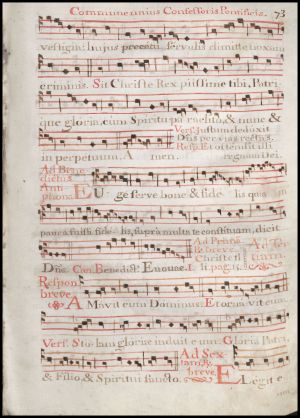 Commune unius Confessoris Pontificis. 73
vestigii: hujus precatu servulis dimitte noxam
criminis. Sit Christe Rex piissime tibi, Patri-
que gloria, cum Spiritu paraclito, & nunc &
Vers. Justum deduxit
Dñs per vias rectas.
Resp. Et ostendit illi
in perpetuum. A men. regnum Dei.
Ad Bene
dictus
Antiphona.
EUge serve bone & fide lis quia in
pauca fuisti fidelis, supra multa te constituam, dicit
Dñs. Can. Benedict. E u o u a e.
Ad Prima
R. breve.
Christe
Ad Ter
tiam.
Respon
breve.
AMavit eum Dominus, Et ornavit eum.
Vers. Stolam gloriæ induit eum. Gloria Patri,
& Filio, & Spiritui sancto.
Ad Sex
tam, R.
breve.
ELegit e